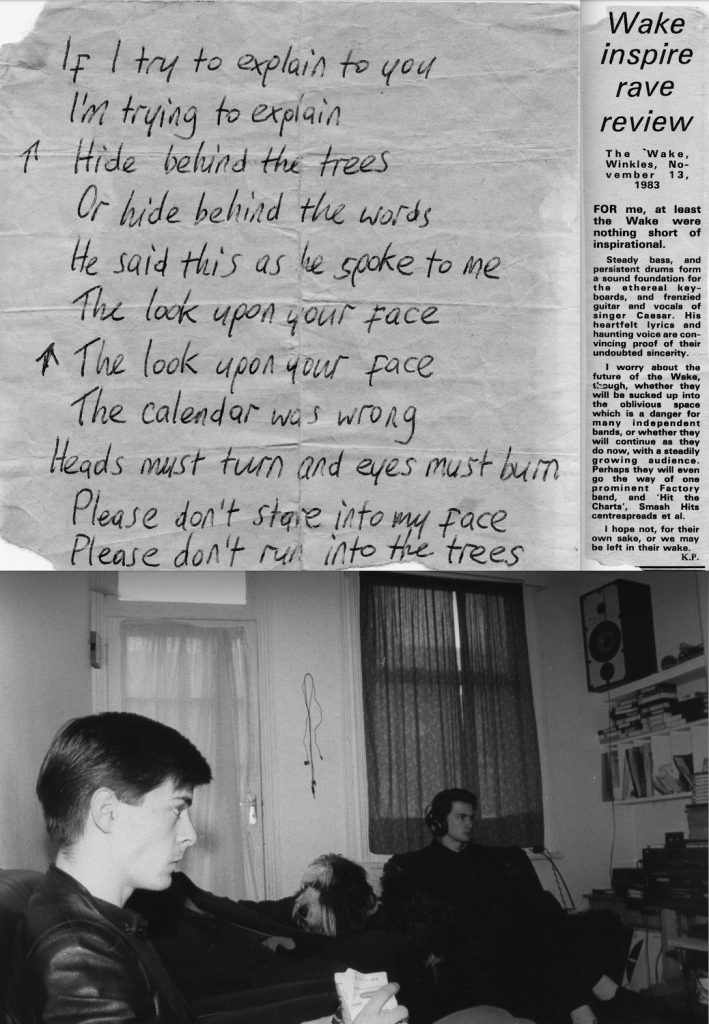 If I try to explain to you
I'm trying to explain
↑ Hide behind the trees
Or hide behind the words
He said this as he spoke to me
The look upon your face
↑ The look upon your face
The calendar was wrong
Heads must turn and eyes must burn
Please don't stare into my face
Please don't run into the trees
Wake
inspire
rave
review
The Wake,
Winkles, No-
vember 13,
1983
FOR me, at least
the Wake were
nothing short of
inspirational.
Steady bass, and
persistent drums form
a sound foundation for
the ethereal key-
boards, and frenzied
guitar and vocals of
singer Caesar. His
heartfelt lyrics and
haunting voice are con-
vincing proof of their
undoubted sincerity.
I worry about the
future of the Wake,
though, whether they
will be sucked up into
the oblivious space
which is a danger for
many independent
bands, or whether they
will continue as they
do now, with a steadily
growing audience.
Perhaps they will even
go the way of one
prominent Factory
band, and 'Hit the
Charts', Smash Hits
centrespreads et al.
I hope not, for their
own sake, or we may
be left in their wake.
K.P.